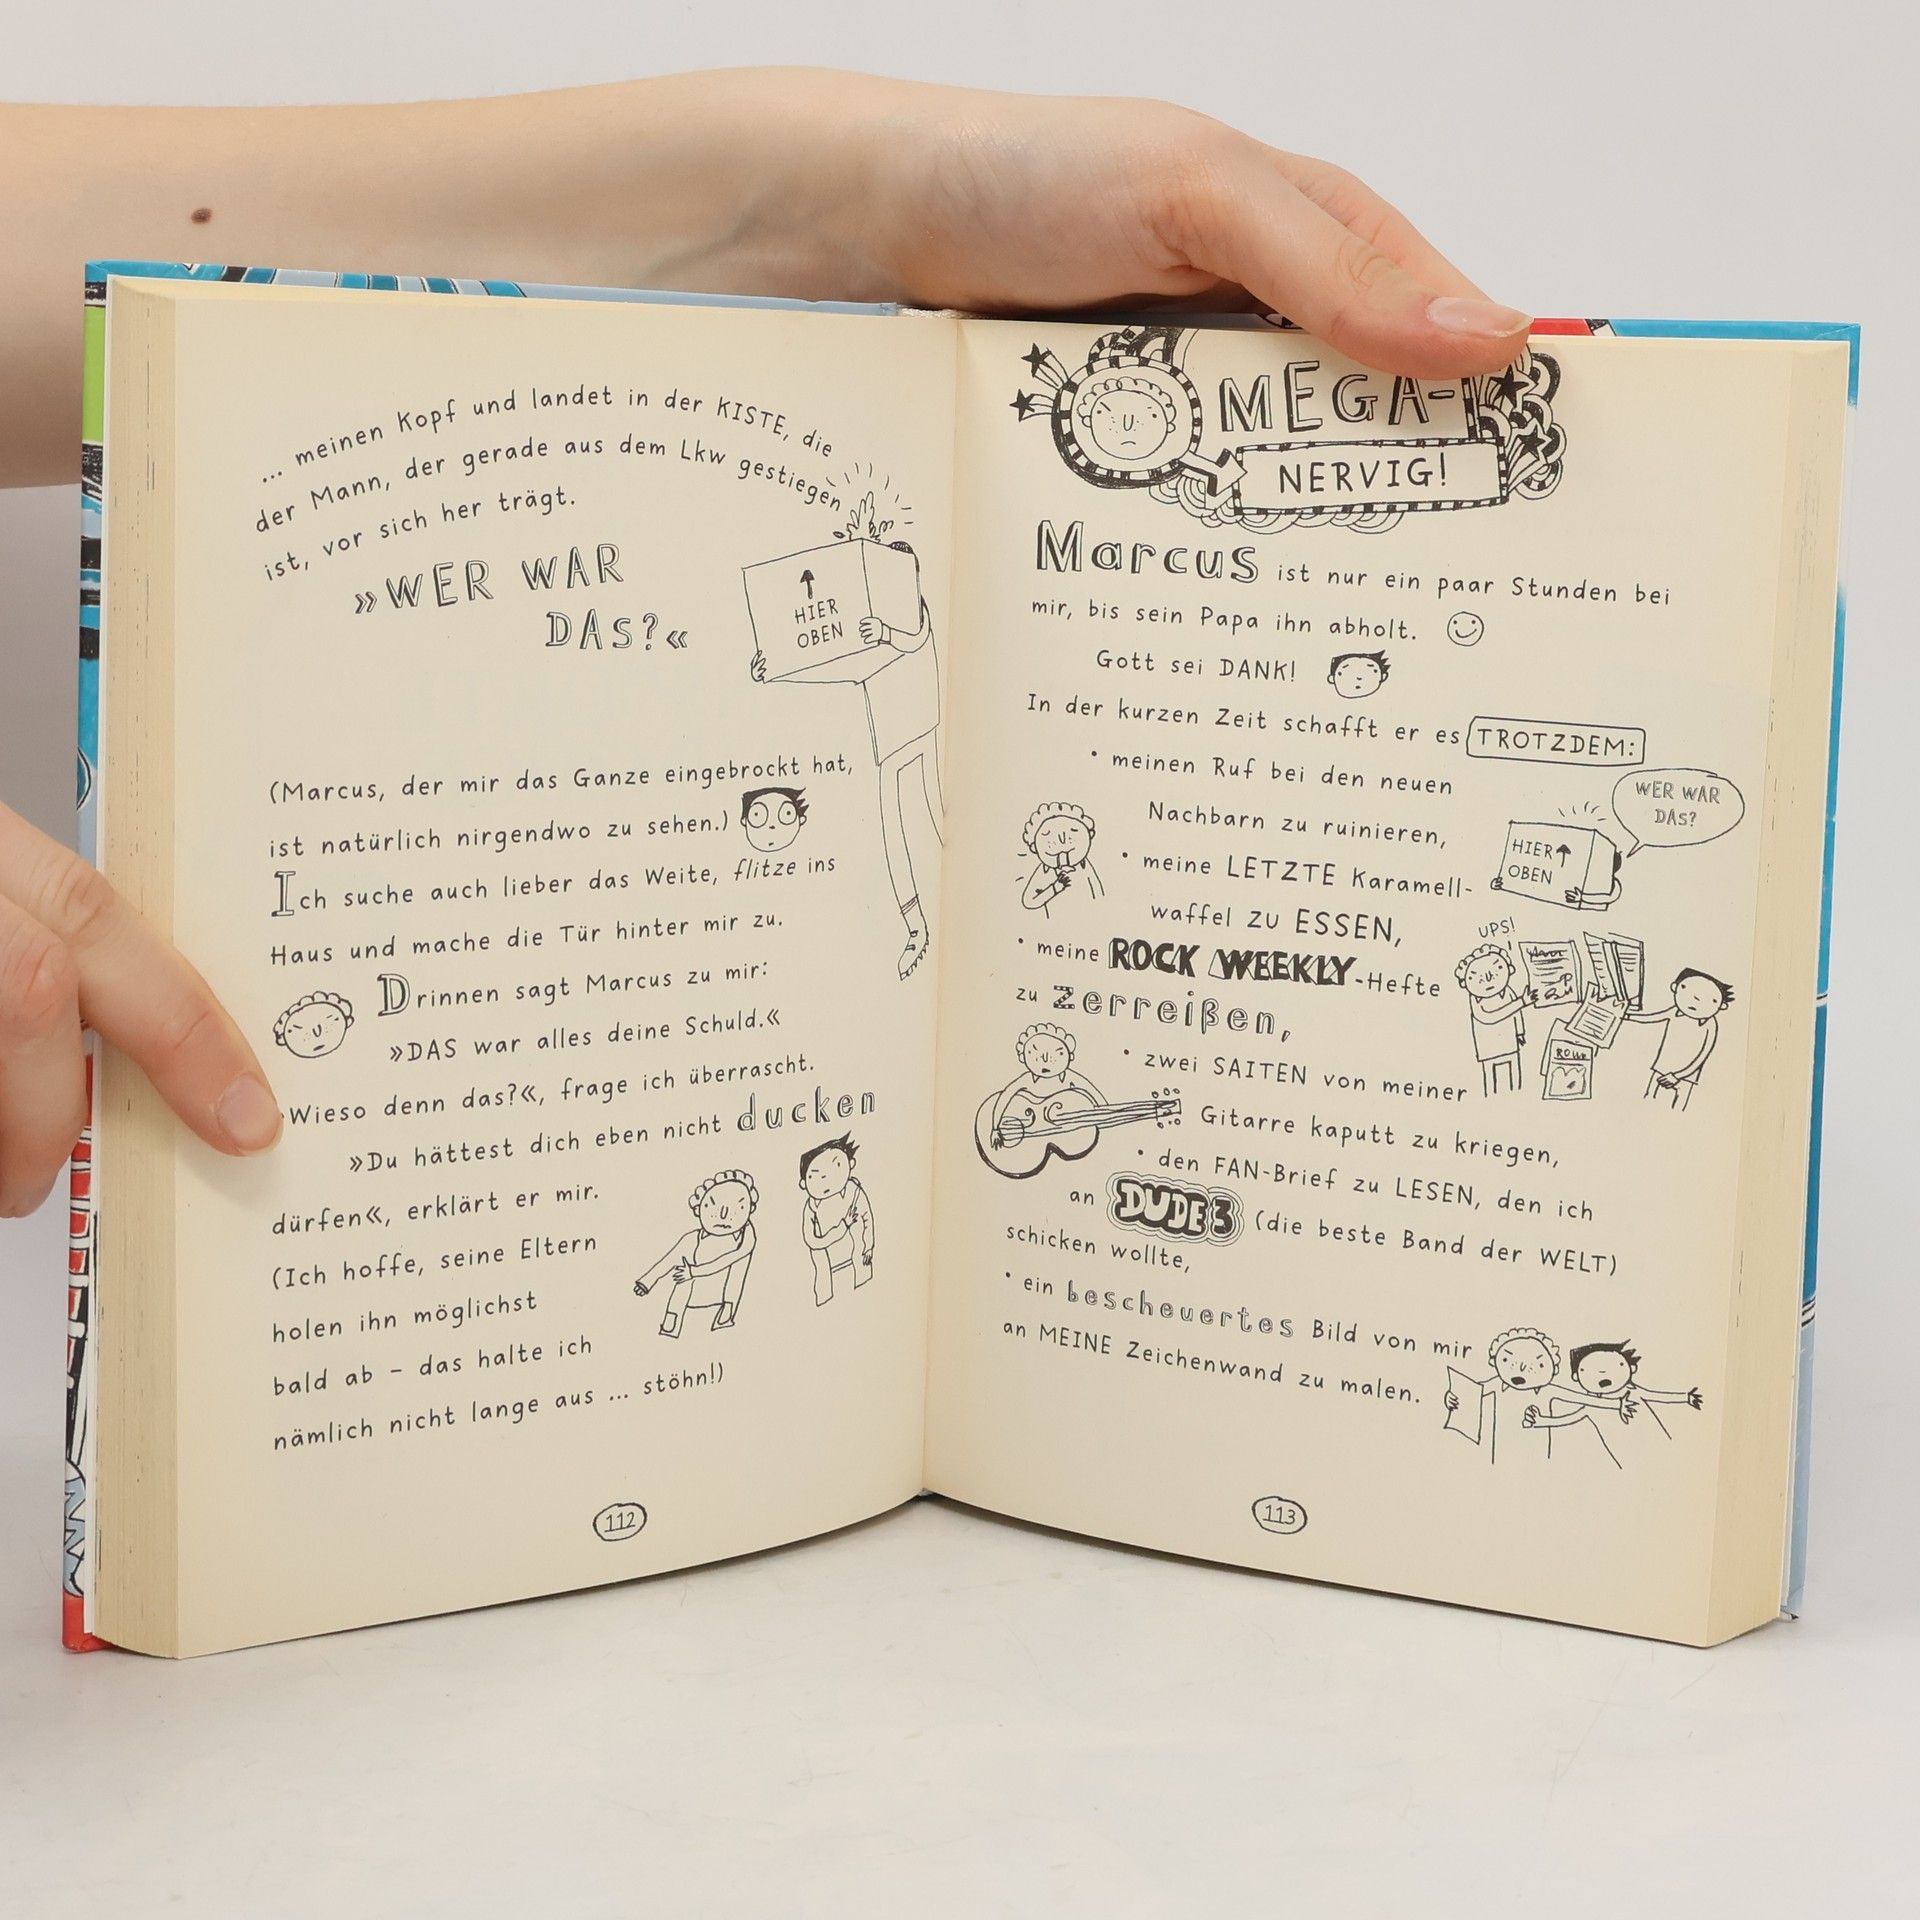 ... meinen Kopf und landet in der KISTE, die
der Mann, der gerade aus dem Lkw gestiegen
ist, vor sich her trägt.
»WER WAR
DAS?«
HIER
OBEN
(Marcus, der mir das Ganze eingebrockt hat,
ist natürlich nirgendwo zu sehen.)
Ich suche auch lieber das Weite, flitze ins
Haus und mache die Tür hinter mir zu.
Drinnen sagt Marcus zu mir:
»DAS war alles deine Schuld.«
Wieso denn das?«, frage ich überrascht.
»Du hättest dich eben nicht ducken
dürfen«, erklärt er mir.
(Ich hoffe, seine Eltern
holen ihn möglichst
bald ab – das halte ich
nämlich nicht lange aus ... stöhn!)
112
MEGA-
NERVIG!
Marcus ist nur ein paar Stunden bei
mir, bis sein Papa ihn abholt.
Gott sei DANK!
In der kurzen Zeit schafft er es TROTZDEM:
• meinen Ruf bei den neuen
Nachbarn zu ruinieren,
WER WAR
DAS?
HIER
OBEN
• meine LETZTE Karamell-
waffel zu ESSEN,
• meine ROCK WEEKLY-Hefte
zu zerreißen,
UPS!
• zwei SAITEN von meiner
Gitarre kaputt zu kriegen,
• den FAN-Brief zu LESEN, den ich
an DUDE 3 (die beste Band der WELT)
schicken wollte,
• ein bescheuertes Bild von mir
an MEINE Zeichenwand zu malen.
113